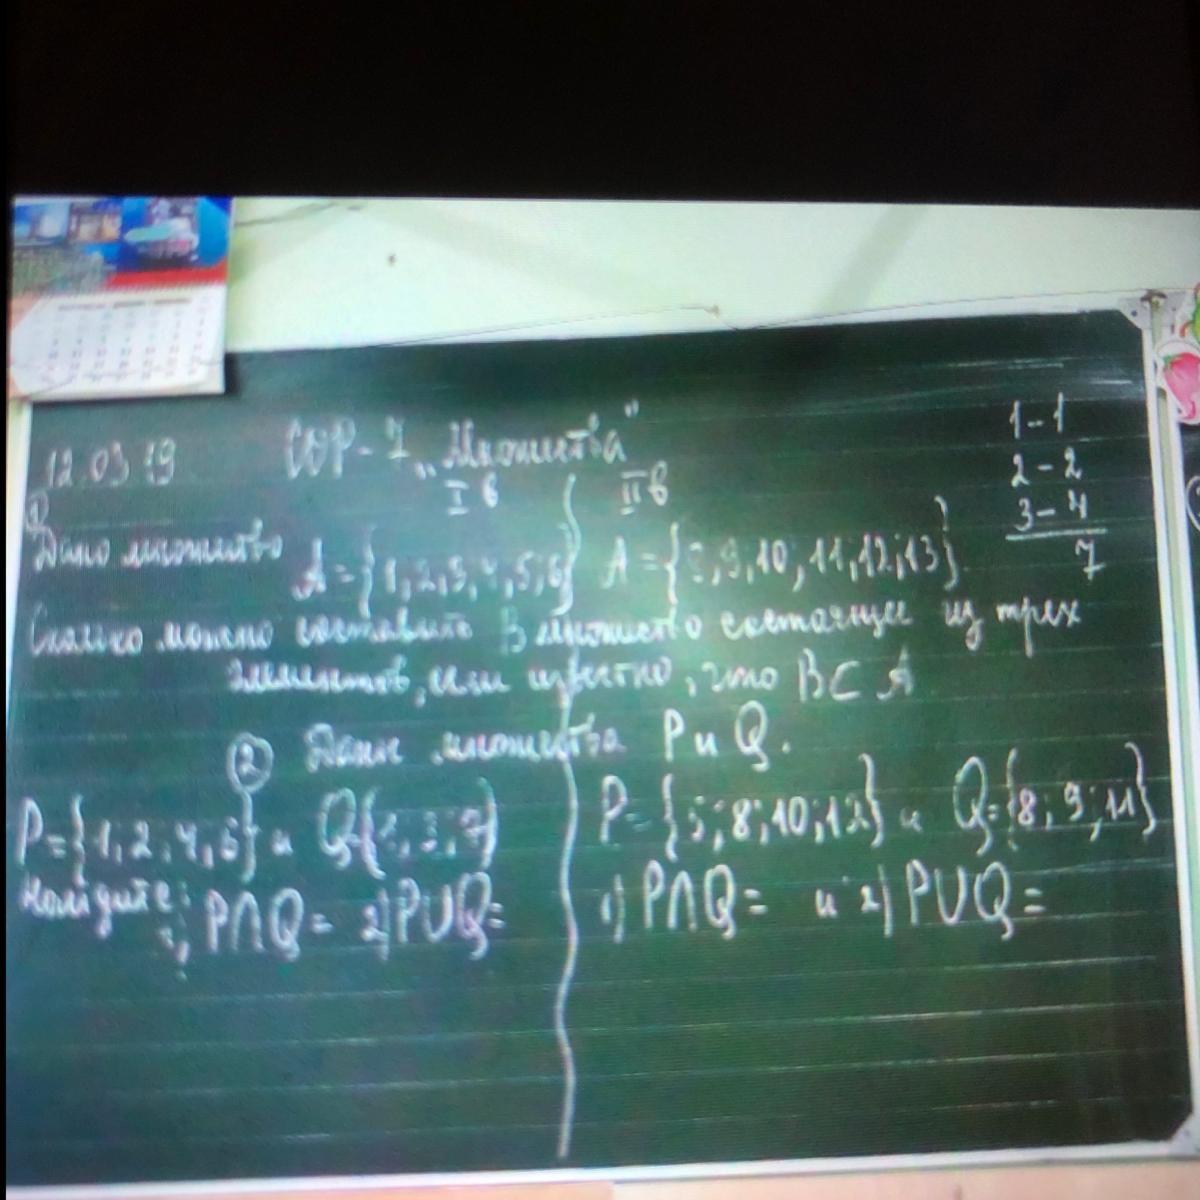 12.03 19 СОР-7 „Множества"
I в II в
1-1
2-2
3-4
7
①
Дано множество A={1,2,3,4,5,6} A={8,9,10,11,12,13}.
Сколько можно составить B множество состоящее из трех
элементов, если известно, что B⊂A
② Даны множества P и Q.
P={1,2,4,5} и Q{1,3,7} P={5;8;10;12} и Q={8;9;11}
Найдите: 1) P∩Q= 2) P∪Q= 1) P∩Q= и 2) P∪Q=